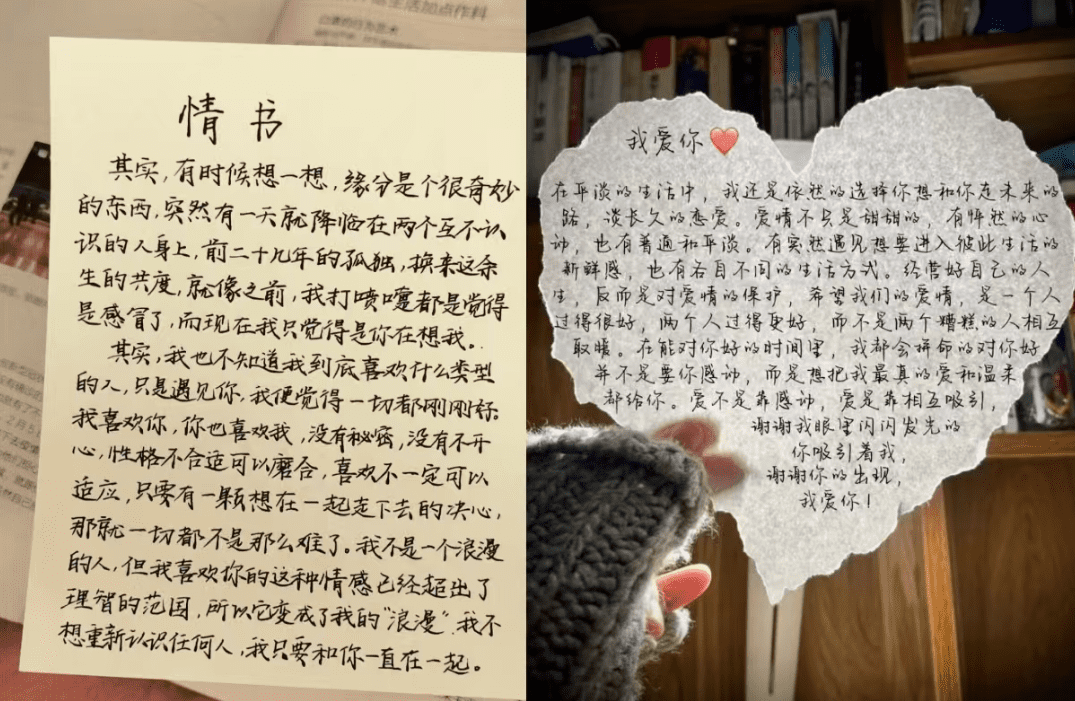 生活加点作料
情书
其实,有时候想一想,缘分是个很奇妙
的东西,突然有一天就降临在两个互不认
识的人身上,前二十九年的孤独,换来这余
生的共度,就像之前,我打喷嚏都是觉得
是感冒了,而现在我只觉得是你在想我。
其实,我也不知道我到底喜欢什么类型
的人,只是遇见你,我便觉得一切都刚刚好。
我喜欢你,你也喜欢我,没有秘密,没有不开
心,性格不合适可以磨合,喜欢不一定可以
适应,只要有一颗想在一起走下去的决心,
那就一切都不是那么难了。我不是一个浪漫
的人,但我喜欢你的这种情感已经超出了
理智的范围,所以它变成了我的“浪漫”.我不
想重新认识任何人,我只要和你一直在一起。
我爱你❤️
在平淡的生活中,我还是依然的选择你想和你走未来的
路,谈长久的恋爱。爱情不只是甜甜的,有怦然的心
动,也有普通和平淡。有突然遇见想要进入彼此生活的
新鲜感,也有各自不同的生活方式。经营好自己的人
生,反而是对爱情的保护,希望我们的爱情,是一个人
过得很好,两个人过得更好,而不是两个糟糕的人相互
取暖。在能对你好的时间里,我都会拼命的对你好
并不是要你感动,而是想把我最真的爱和温柔
都给你。爱不是靠感动,爱是靠相互吸引,
谢谢我眼里闪闪发光的
你吸引着我,
谢谢你的出现,
我爱你!